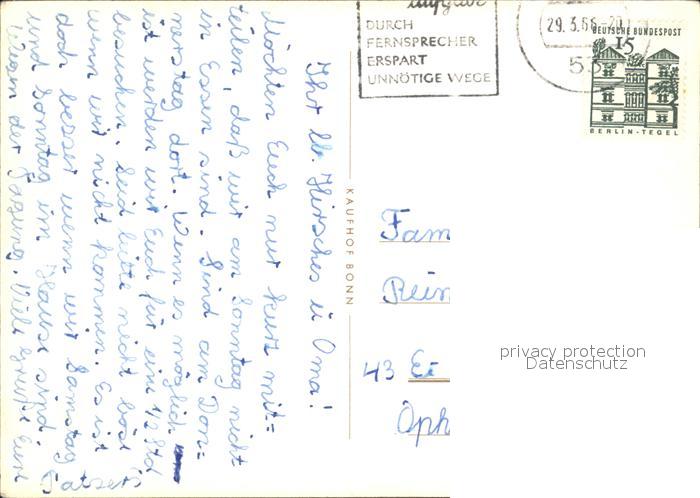 Ihr lb. Hirsches u Oma!
Möchten Euch nur kurz mit-
teilen, daß wir am Sonntag nicht
in Essen sind. Sind am Don-
nerstag dort. Wenn es möglich
ist werden wir Euch für ein 1/2 Std
besuchen. Seid bitte nicht böse
wenn wir nicht kommen. Es ist
doch besser wenn wir Samstag
und Sonntag im Hause sind.
Wegen der Tagung. Viele Grüße Eure
KAUFHOF BONN
DURCH
FERNSPRECHER
ERSPART
UNNÖTIGE WEGE
29.3.66-20
53
DEUTSCHE BUNDESPOST
15
BERLIN-TEGEL
Fam
43
privacy protection
Datenschutz